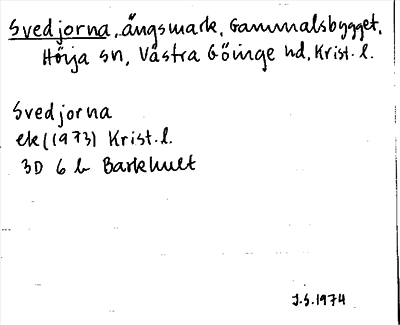 Svedjorna, ängsmark, Gammalsbygget,
Hörja sn, Västra Göinge hd, Krist. l.
Svedjorna
ek (1973) Krist. l.
3D 6 b Barkhult
J.S. 1974